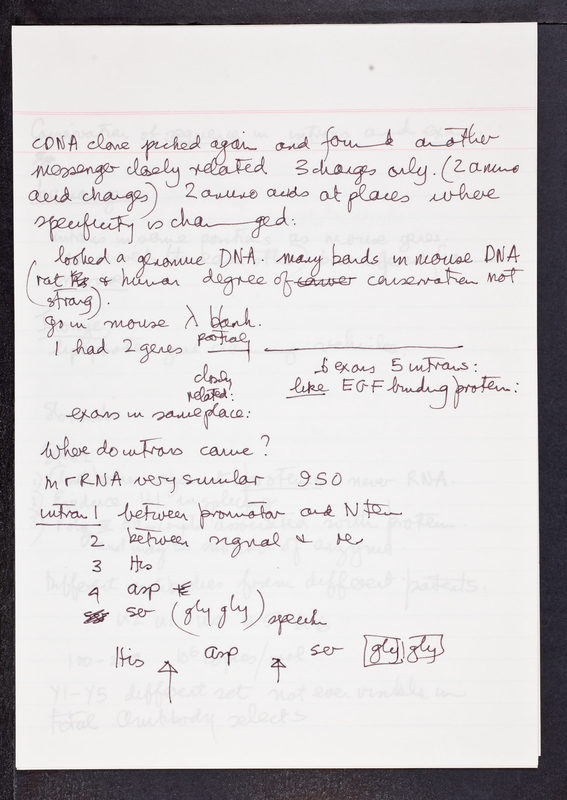 cDNA clone picked again and found another
messenger closely related 3 changes only. (2 amino
acid changes) 2 amino acids at places where
specificity is chan ged.
looked a genomic DNA. many bands in mouse DNA
(rat & human degree of conservation not
strong).
go in mouse λ bank.
1 had 2 genes partial
closely related:
6 exons 5 introns:
like EGF binding protein:
exons in same place:
Where do introns come?
mRNA very similar 950
intron 1 between promotor and N term
2 between signal &
3 His
4 asp
ser (gly gly) specif
His asp ser gly gly